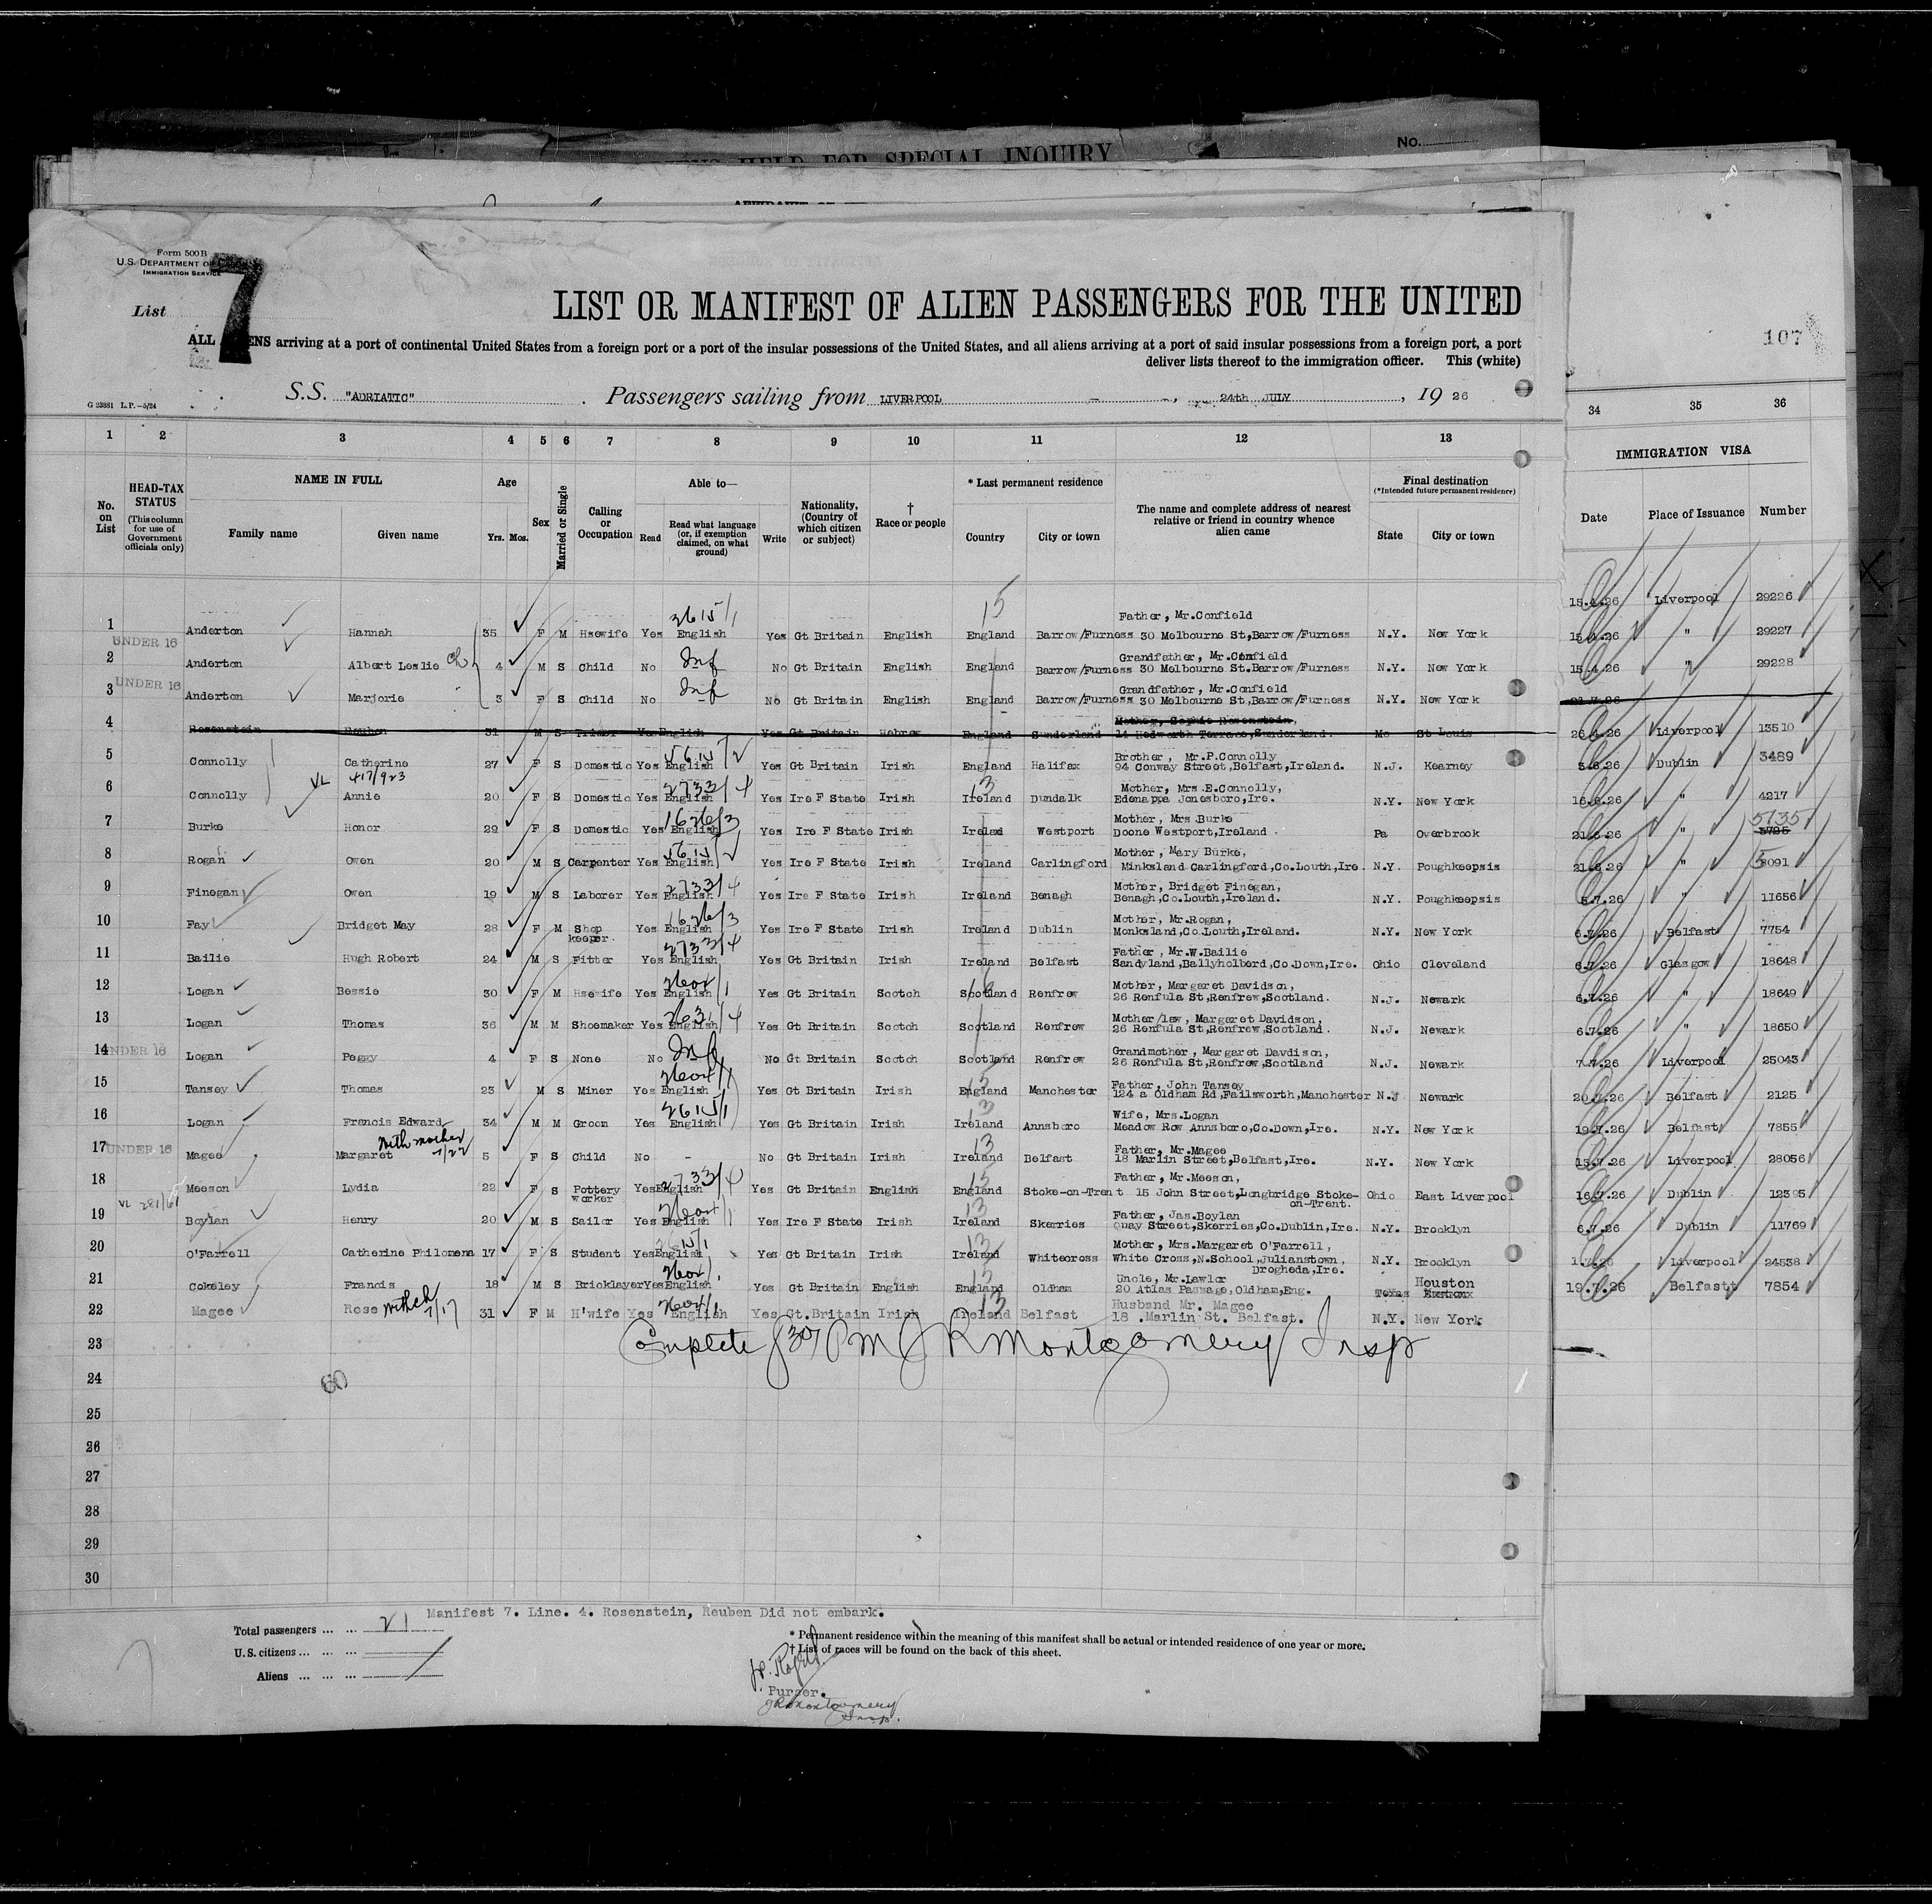 No.
ALIENS HELD FOR SPECIAL INQUIRY
Form 500B
U.S. DEPARTMENT OF
IMMIGRATION SERVICE
List 7
LIST OR MANIFEST OF ALIEN PASSENGERS FOR THE UNITED
ALL ALIENS arriving at a port of continental United States from a foreign port or a port of the insular possessions of the United States, and all aliens arriving at a port of said insular possessions from a foreign port, a port
deliver lists thereof to the immigration officer. This (white)
107
G 23881 L.P.—5/24
S.S. "ADRIATIC" Passengers sailing from LIVERPOOL , 24th JULY , 19 26
1 2 3 4 5 6 7 8 9 10 11 12 13 34 35 36
No. on List
HEAD-TAX STATUS (This column for use of Government officials only)
NAME IN FULL Family name Given name
Age Yrs. Mos.
Sex
Married or Single
Calling or Occupation
Able to— Read Read what language (or, if exemption claimed, on what ground) Write
Nationality, (Country of which citizen or subject)
† Race or people
* Last permanent residence Country City or town
The name and complete address of nearest relative or friend in country whence alien came
Final destination (*Intended future permanent residence) State City or town
IMMIGRATION VISA Date Place of Issuance Number
15.4.26 Liverpool 29226
Father, Mr.Confield
1 Anderton Hannah 35 F M Hsewife Yes English Yes Gt Britain English England Barrow/Furness 30 Melbourne St,Barrow/Furness N.Y. New York 15.4.26 " 29227
UNDER 16
Grandfather, Mr.Confield
2 Anderton Albert Leslie 4 M S Child No Inf No Gt Britain English England Barrow/Furness 30 Melbourne St.Barrow/Furness N.Y. New York 15.4.26 " 29228
UNDER 16
Grandfather, Mr.Confield
3 Anderton Marjorie 3 F S Child No Inf No Gt Britain English England Barrow/Furness 30 Melbourne St,Barrow/Furness N.Y. New York 21.7.26
Mother, Sophie Rosenstein,
4 Rosenstein Reuben 31 M S Yes English Yes Gt Britain Hebrew England Sunderland 14 Hedworth Terrace,Sunderland. Mo St Louis 26.4.26 Liverpool 13510
Brother, Mr.P.Connolly
5 Connolly Catherine 27 F S Domestic Yes English Yes Gt Britain Irish England Halifax 94 Conway Street,Belfast,Ireland. N.J. Kearney Dublin 3489
VL 417/923
Mother, Mrs.E.Connolly,
6 Connolly Annie 20 F S Domestic Yes English Yes Ire F State Irish Ireland Dundalk Edenappa Jonesboro,Ire. N.Y. New York 16.6.26 " 4217
Mother, Mrs Burke 5735
7 Burke Honor 29 F S Domestic Yes English Yes Ire F State Irish Irelan Westport Doone Westport,Ireland Pa Overbrook 21.6.26 " 5725
Mother, Mary Burke,
8 Rogan Owen 20 M S Carpenter Yes English Yes Ire F State Irish Ireland Carlingford Minksland Carlingford,Co.Louth,Ire. N.Y. Poughkeepsie 21.6.26 " 5091
Mother, Bridget Finegan,
9 Finegan Owen 19 M S Laborer Yes English Yes Ire F State Irish Ireland Benagh Benagh,Co.Louth,Ireland. N.Y. Poughkeepsie 5.7.26 " 11656
Mother, Mr.Rogan,
10 Fay Bridget May 28 F M Shop keeper. Yes English Yes Ire F State Irish Ireland Dublin Monksland,Co.Louth,Ireland. N.Y. New York 6.7.26 Belfast 7754
Father, Mr.W.Bailie
11 Bailie Hugh Robert 24 M S Fitter Yes English Yes Gt Britain Irish Ireland Belfast Sandyland,Ballyholberd,Co.Down,Ire. Ohio Cleveland 6.7.26 Glasgow 18648
Mother, Margaret Davidson,
12 Logan Bessie 30 F M Hsewife Yes English Yes Gt Britain Scotch Scotland Renfrew 26 Renfula St,Renfrew,Scotland. N.J. Newark 6.7.26 " 18649
Mother/law, Margaret Davidson,
13 Logan Thomas 36 M M Shoemaker Yes English Yes Gt Britain Scotch Scotland Renfrew 26 Renfula St,Renfrew,Scotland. N.J. Newark 6.7.26 " 18650
UNDER 16
Grandmother, Margaret Davdison,
14 Logan Peggy 4 F S None No Inf No Gt Britain Scotch Scotland Renfrew 26 Renfula St,Renfrew,Scotland N.J. Newark 7.7.26 Liverpool 25043
Father, John Tansey
15 Tansey Thomas 23 M S Miner Yes English Yes Gt Britain Irish England Manchester 124 a Oldham Rd,Failsworth,Manchester N.J Newark 20.7.26 Belfast 2125
Wife, Mrs.Logan
16 Logan Francis Edward 34 M M Groom Yes English Yes Gt Britain Irish Ireland Annsboro Meadow Row Annsboro,Co.Down,Ire. N.Y. New York 19.7.26 Belfast 7855
UNDER 16 With mother 7/22
Father, Mr.Magee
17 Magee Margaret 5 F S Child No - No Gt Britain Irish Ireland Belfast 18 Marlin Street,Belfast,Ire. N.Y. New York 15.7.26 Liverpool 28056
Father, Mr.Meeson,
18 Meeson Lydia 22 F S Pottery worker Yes English Yes Gt Britain English England Stoke-on-Trent 15 John Street,Longbridge Stoke-on-Trent. Ohio East Liverpool 16.7.26 Dublin 12395
VL 281/61
Father, Jas.Boylan
19 Boylan Henry 20 M S Sailor Yes English Yes Ire F State Irish Ireland Skerries Quay Street,Skerries,Co.Dublin,Ire. N.Y. Brooklyn 6.7.26 Dublin 11769
Mother, Mrs.Margaret O'Farrell,
20 O'Farrell Catherine Philomena 17 F S Student Yes English Yes Gt Britain Irish Ireland Whitecross White Cross,N.School,Julianstown, Drogheda,Ire. N.Y. Brooklyn Liverpool 24538
Uncle, Mr.Lawlor Houston
21 Cokeley Francis 18 M S Bricklayer Yes English Yes Gt Britain English England Oldham 20 Atlas Passage,Oldham,Eng. Texas 19.7.26 Belfast 7854
Husband Mr. Magee
22 Magee Rose With ch 7/17 31 F M H'wife Yes English Yes Gt.Britain Irish Ireland Belfast 18 .Marlin St. Belfast. N.Y. New York.
23 Complete 830 PM J R Montgomery Insp
24
60
25
26
27
28
29
30
Manifest 7. Line. 4. Rosenstein, Reuben Did not embark.
Total passengers ... ... 21
U.S. citizens ... ... ...
Aliens ... ... ...
* Permanent residence within the meaning of this manifest shall be actual or intended residence of one year or more.
† List of races will be found on the back of this sheet.
Purser.
JRMontgomery
Insp.